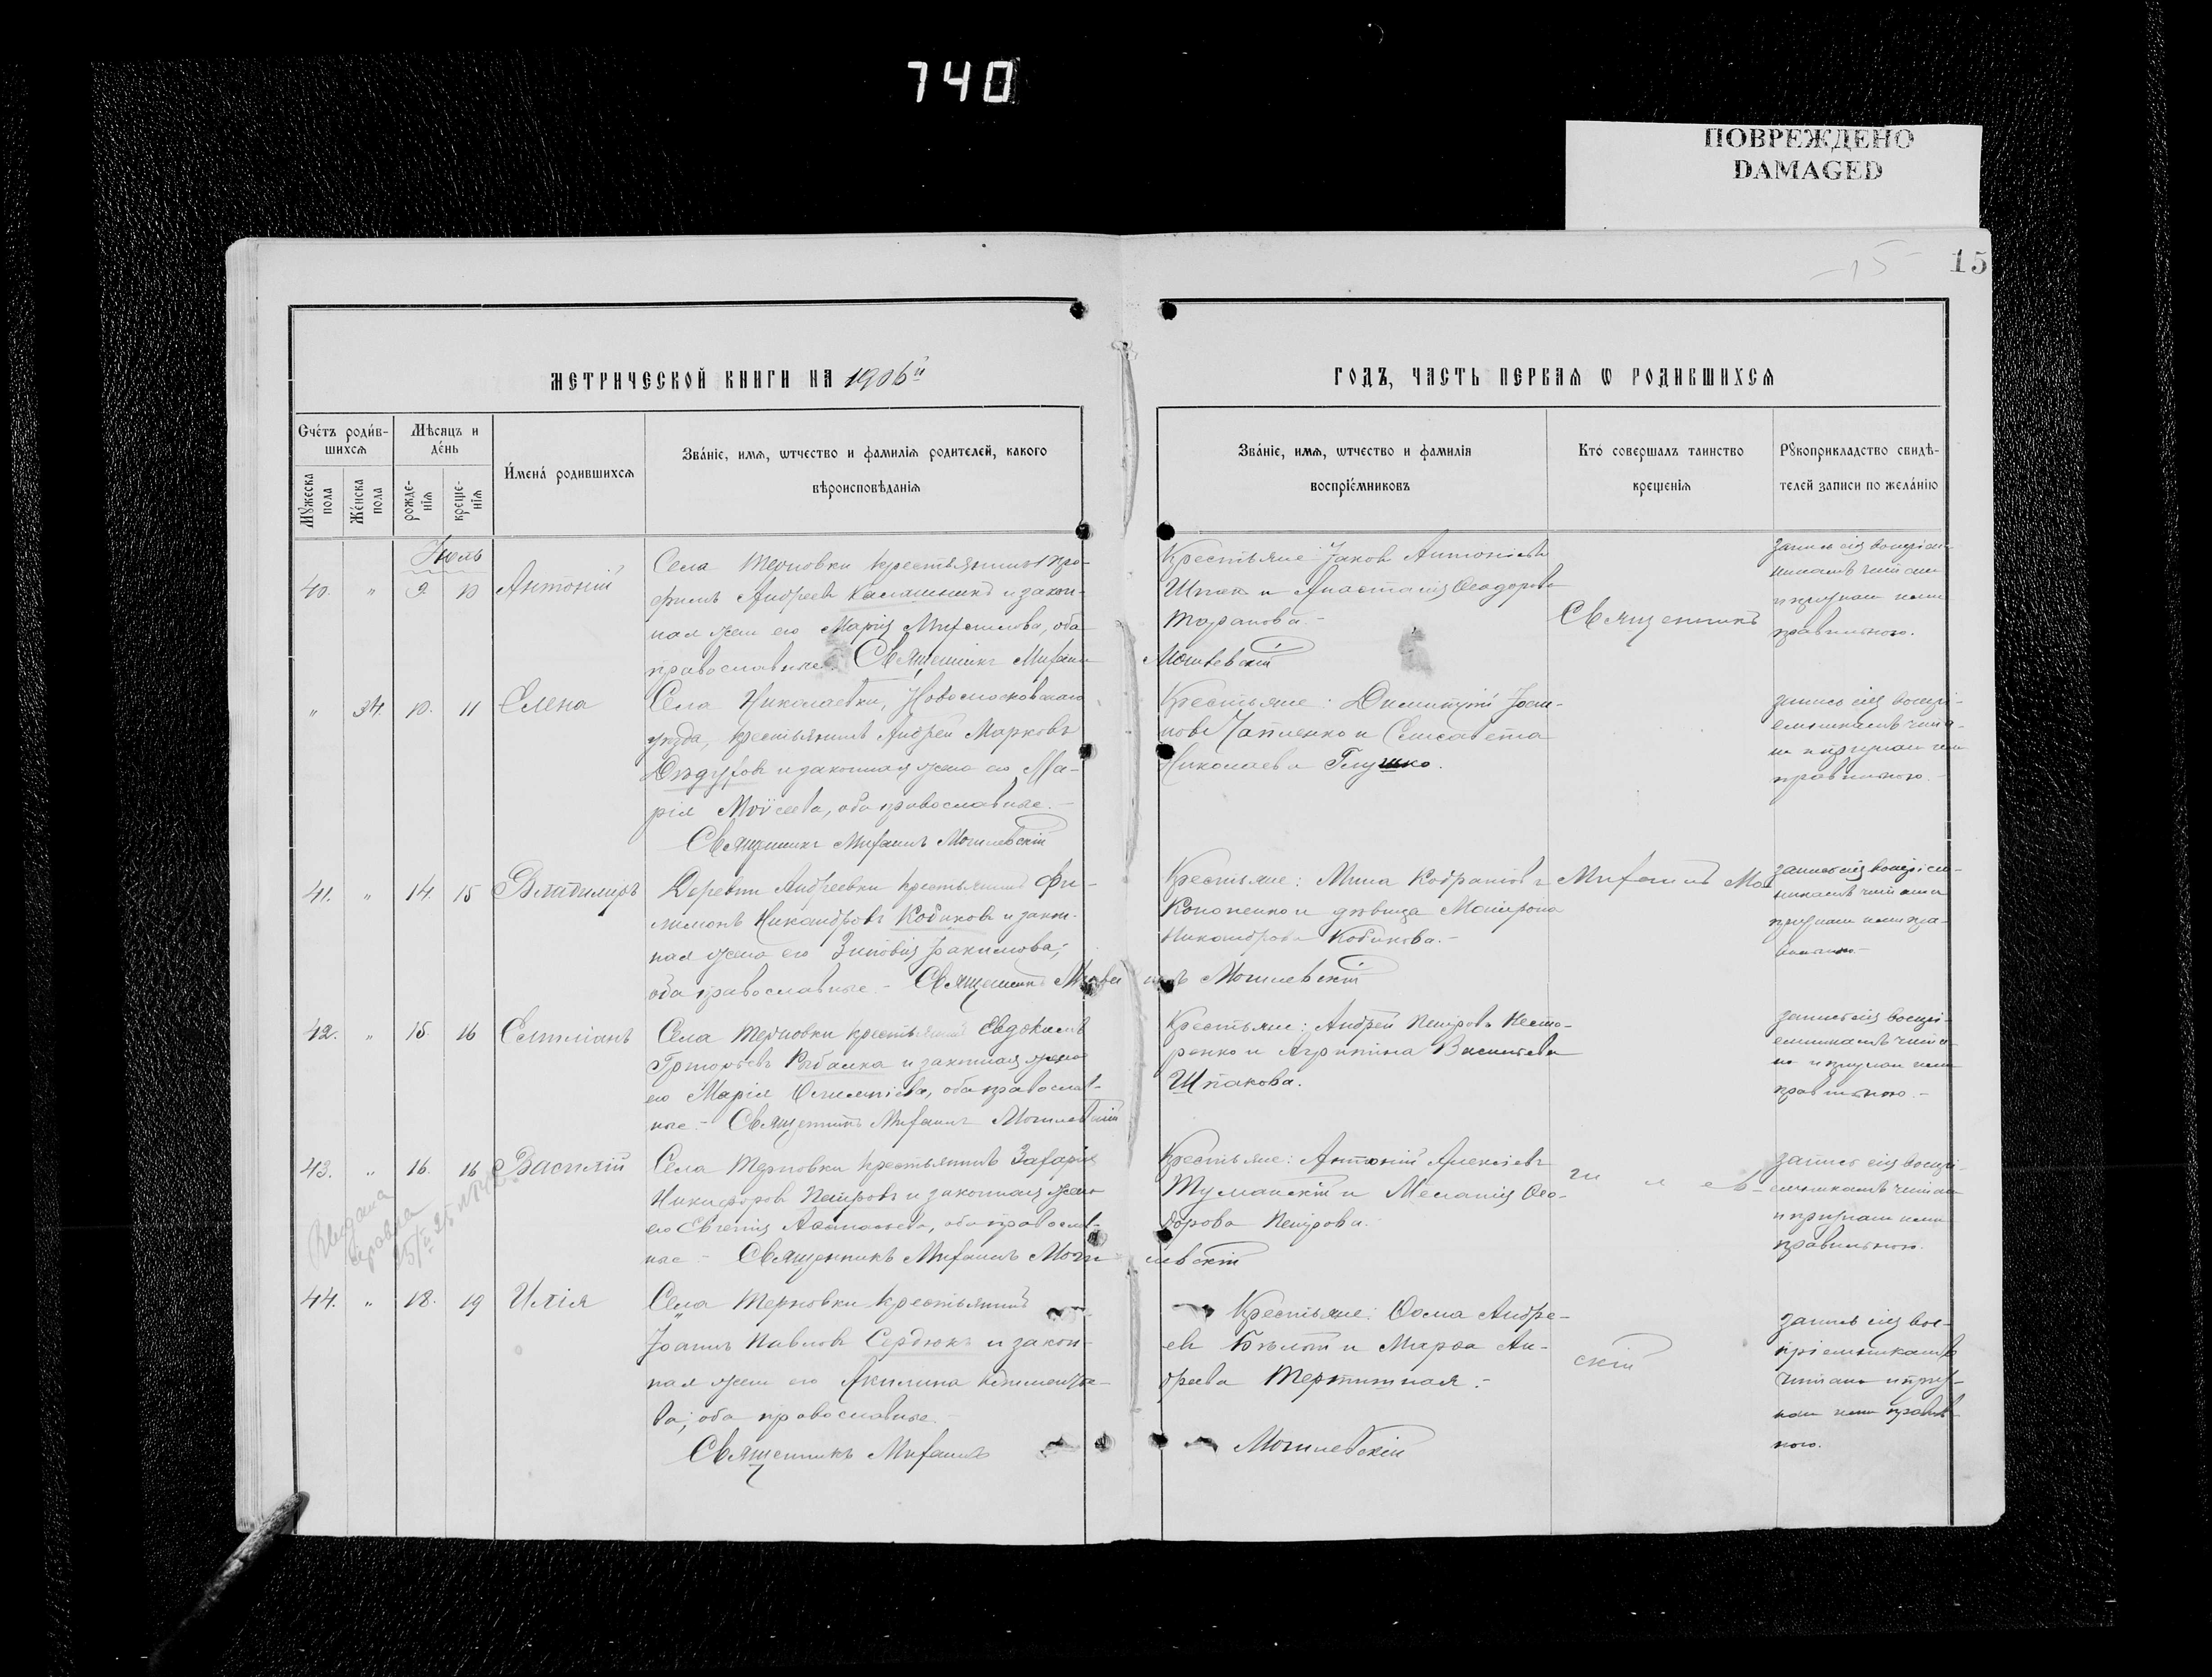 740
ПОВРЕЖДЕНО
DAMAGED
15
15
МЕТРИЧЕСКОЙ КНИГИ НА 1906й
ГОДЪ, ЧАСТЬ ПЕРВАЯ Ѡ РОДИВШИХСЯ
Счетъ родив-
шихся
Мѣсяцъ и
день
Мужеска пола
Женска пола
рожде-
нія
креще-
нія
Имена родившихся
Званіе, имя, ѡтчество и фамилія родителей, какого
вѣроисповѣданія
Званіе, имя, ѡтчество и фамилія
воспріемниковъ
Кто совершалъ таинство
крещенія
Рукоприкладство свидѣ-
телей записи по желанію
Іюль
40. " 9. 10 Антоній
Села Терновки крестьянинъ Тро-
фимъ Андреевъ Калашникъ и закон-
ная жена его Марія Михаилова, оба
православные. Священникъ Михаилъ
Могилевскій
Крестьяне: Іаковъ Антоніевъ
Шпак и Анастасія Ѳеодорова
Таранова.
Священникъ
запись сія воспріем-
никамъ читана
и признана ими
правильною.
" 34. 10. 11 Елена
Села Николаевки, Новомосковскаго
уѣзда, крестьянинъ Андрей Марковъ
и законная жена его Ма-
рія Моѵсеева, оба православные.
Священникъ Михаилъ Могилевскій
Крестьяне: Димитрій Іоан-
новъ Чапленко и Елисавета
Николаева Глушко.
запись сія воспрі-
емникамъ чита-
на и признана ими
правильною.
41. " 14. 15 Владимиръ
Деревни Андреевки крестьянинъ Фи-
лимонъ Никандровъ Кобиковъ и закон-
ная жена его Зиновія Іоакимова,
оба православные. Священникъ Миха
илъ Могилевскій
Крестьяне: Мина Кодратовъ
Кононенко и дѣвица Матрона
Никандрова Кобикова.
Михаилъ Мо
запись сія воспріем-
никамъ читана
признана ими пра-
вильною
42. " 15. 16 Емиліанъ
Села Терновки крестьянинъ Евдокимъ
Григорьевъ Рыбалка и законная жена
его Марія Олимпіева, оба православ-
ные. Священникъ Михаилъ Могилевскій
Крестьяне: Андрей Петровъ Несте-
ренко и Агриппина Васильева
Шпакова.
запись сія воспрі-
емникамъ чита-
на и признана ими
правильною.
43. " 16. 16 Василій
Села Терновки крестьянинъ Захарія
Никифоровъ Петровъ и законная жена
его Евгенія Аѳанасьева, оба православ-
ные. Священникъ Михаилъ Моги
левскій
Крестьяне: Антоній Алексіевъ
Туманскій и Меланія Ѳео-
дорова Петрова.
ги л ев-
запись сія воспрі-
емникамъ читана
и признана ими
правильною.
Выдана
справка
44. " 18. 19 Илія
Села Терновки крестьянинъ
Іоаннъ Павловъ Сердюкъ и закон-
ная жена его Акилина Климентье-
ва, оба православные.
Священникъ Михаилъ
Могилевскій
Крестьяне: Ѳома Андре-
евъ Бѣлый и Марѳа Ан-
дреева Тертишная.
скій
запись сія вос-
пріемникамъ
читана и приз-
нана ими правиль-
ною.